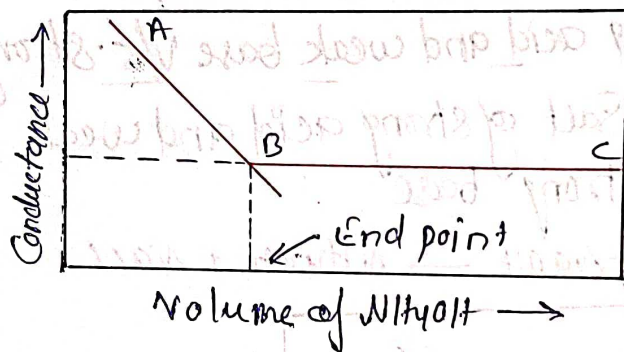 A
B
C
Conductance
End point
Volume of NH4OH